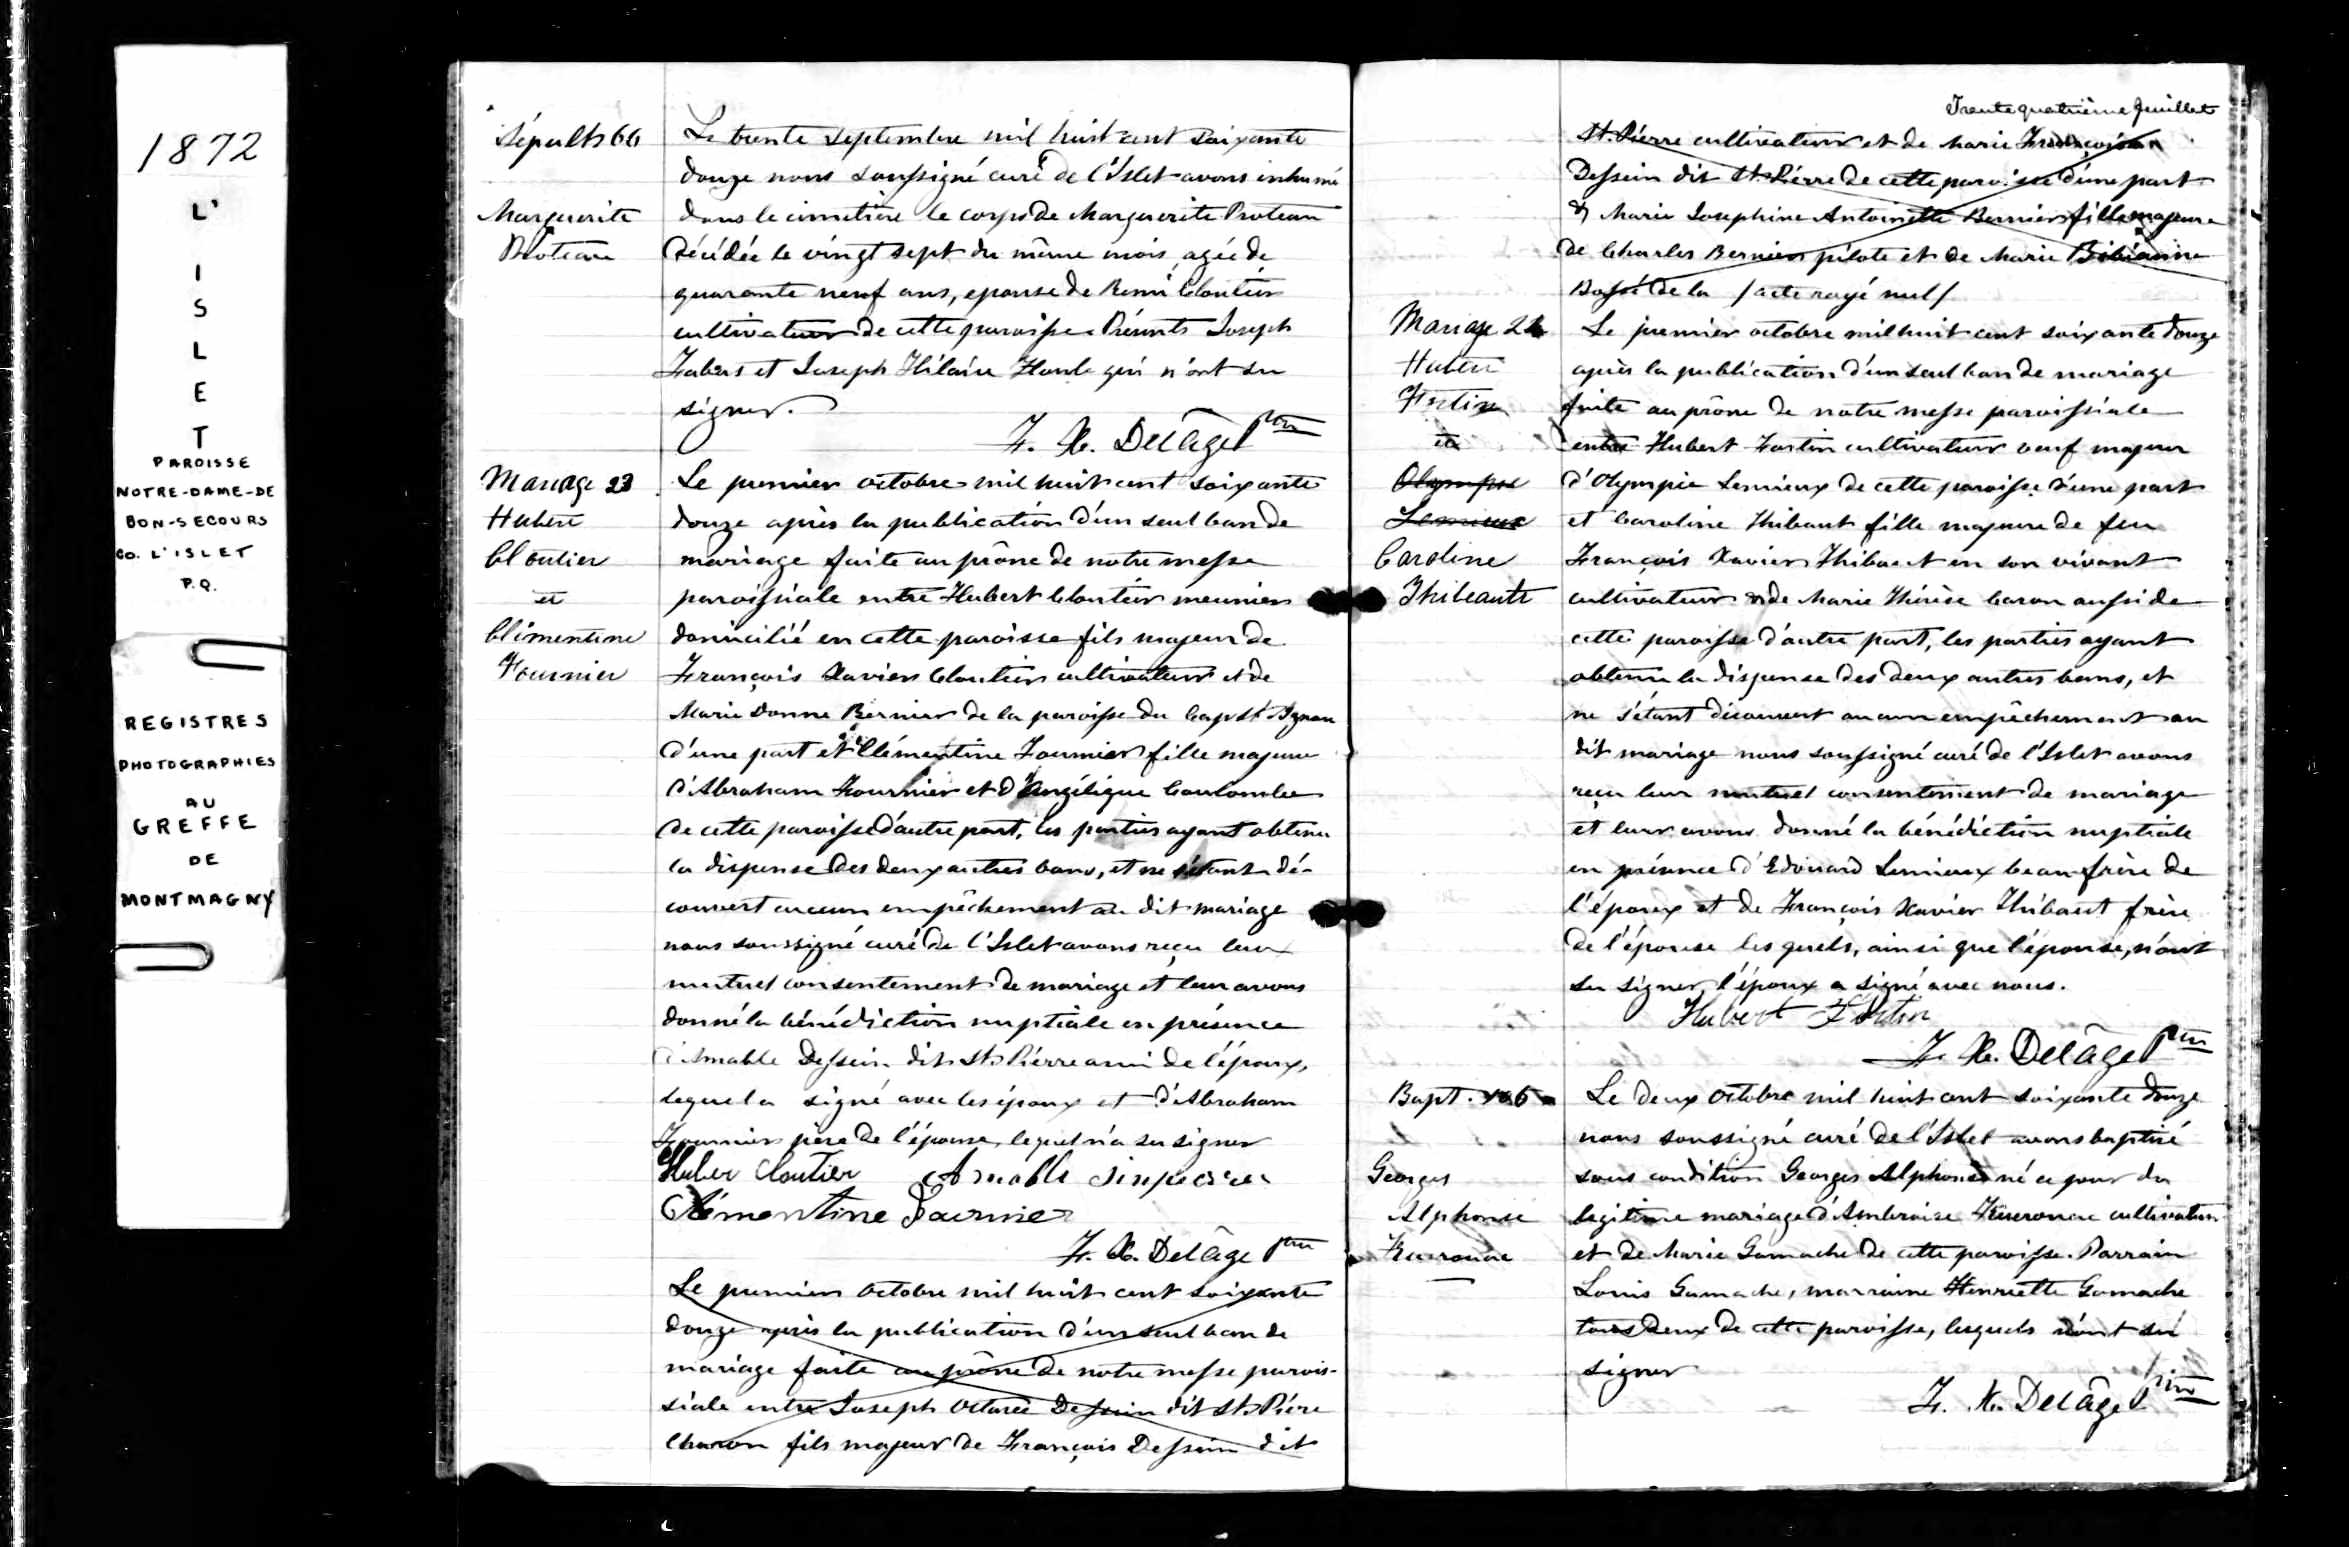 1872
L'
I
S
L
E
T
PAROISSE
NOTRE-DAME-DE
BON-SECOURS
Co. L'ISLET
P.Q.
REGISTRES
PHOTOGRAPHIES
AU
GREFFE
DE
MONTMAGNY
Sépult. 66
Marguerite
Proteau
Le trente septembre mil huit cent soixante
douze nous soussigné curé de l'Islet avons inhumé
dans le cimetière le corps de Marguerite Proteau
décédée le vingt sept du même mois, agée de
quarante neuf ans, epouse de Remi Cloutier
cultivateur de cette paroisse. Présents Joseph
et Joseph Hilaire qui n'ont su
signer.
F. X. Delâge Ptre
Mariage 23
Hubert
Cloutier
et
Clémentine
Fournier
Le premier octobre mil huit cent soixante
douze après la publication d'un seul ban de
mariage faite au prône de notre messe
paroissiale entre Hubert Cloutier meunier
domicilié en cette paroisse fils majeur de
François Xavier Cloutier cultivateur et de
Marie Bernier de la paroisse du Cap St Ignace
d'une part et Clémentine Fournier fille majeure
d'Abraham Fournier et d'Angélique Coulombe
de cette paroisse d'autre part, les parties ayant obtenu
la dispense des deux autres bans, et ne s'étant dé-
couvert aucun empêchement au dit mariage
nous soussigné curé de l'Islet avons reçu leur
mutuel consentement de mariage et leur avons
donné la bénédiction nuptiale en présence
d'Amable Dessein dit St. Pierre ami de l'époux,
lequel a signé avec les époux et d'Abraham
Fournier père de l'épouse, lequel n'a su signer
Huber Cloutier Amable
Clémentine Fournier
F. X. Delâge Ptre
Le premier octobre mil huit cent soixante
douze après la publication d'un seul ban de
mariage faite au prône de notre messe parois-
siale entre Joseph Octave Dessein dit St. Pierre
fils majeur de François Dessein dit
Trente quatrième feuillet
St. Pierre cultivateur et de Marie Françoise
Dessein dit St. Pierre de cette paroisse d'une part
& Marie Josephine Antoinette Bernier fille majeure
de Charles Bernier pilote et de Marie Bibianne
Bossé de la / acte rayé nul /
Mariage 24
Hubert
Fortin
et
Olympie
Lemieux
Caroline
Thibault
Le premier octobre mil huit cent soixante douze
après la publication d'un seul ban de mariage
faite au prône de notre messe paroissiale
entre Hubert Fortin cultivateur veuf majeur
d'Olympie Lemieux de cette paroisse d'une part
et Caroline Thibaut fille majeure de feu
François Xavier Thibaut en son vivant
cultivateur & de Marie Thérèse Caron aussi de
cette paroisse d'autre part, les parties ayant
obtenu la dispense des deux autres bans, et
ne s'étant découvert aucun empêchement au
dit mariage nous soussigné curé de l'Islet avons
reçu leur mutuel consentement de mariage
et leur avons donné la bénédiction nuptiale
en présence d'Edouard Lemieux beau-frère de
l'époux et de François Xavier Thibaut frère
de l'épouse lesquels, ainsi que l'épouse, n'ont
su signer, l'époux a signé avec nous.
Hubert Fortin
F. X. Delâge Ptre
Bapt. 106
Georges
Alphonse
Le deux octobre mil huit cent soixante douze
nous soussigné curé de l'Islet avons baptisé
sous condition Georges Alphonse né ce jour du
legitime mariage d'Ambroise cultivateur
et de Marie Gamache de cette paroisse. Parrain
Louis Gamache, marraine Henriette Gamache
tous deux de cette paroisse, lesquels n'ont su
signer
F. X. Delâge Ptre